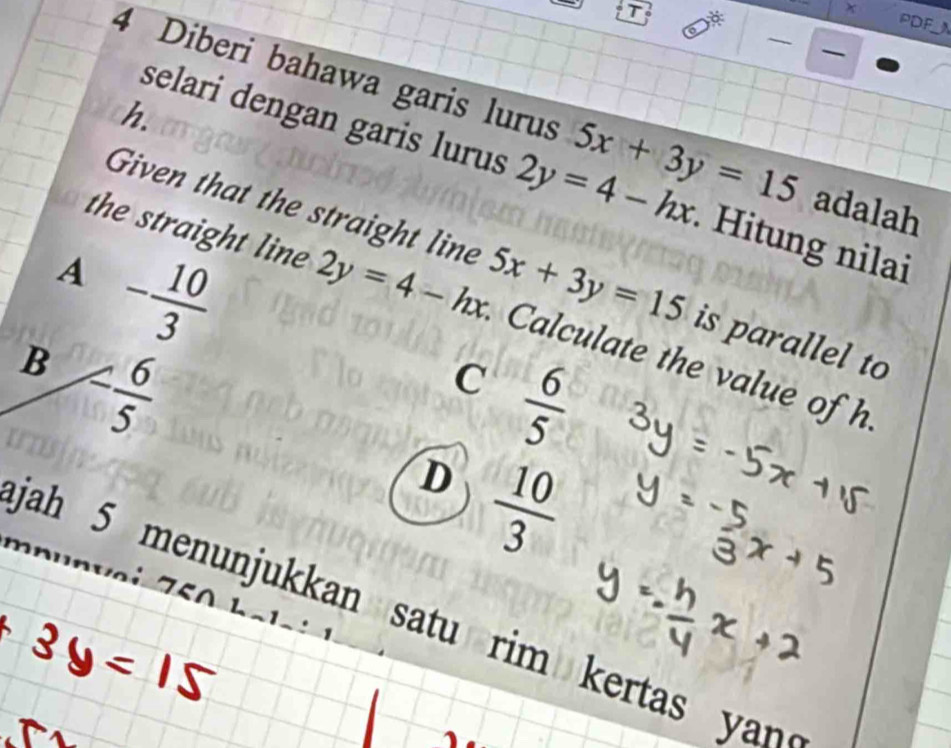 PDF
4 Diberi bahawa garis lurus 5x + 3y = 15 adalah
selari dengan garis lurus 2y = 4 − hx. Hitung nilai
h.
Given that the straight line 5x + 3y = 15 is parallel to
the straight line 2y = 4 − hx. Calculate the value of h.
A −10/3
C 6/5
B −6/5
D 10/3
3y = -5x + 15
y = -5/3 x + 5
y = -h/4 x + 2
ajah 5 menunjukkan satu rim kertas yang
750
+ 3y = 15